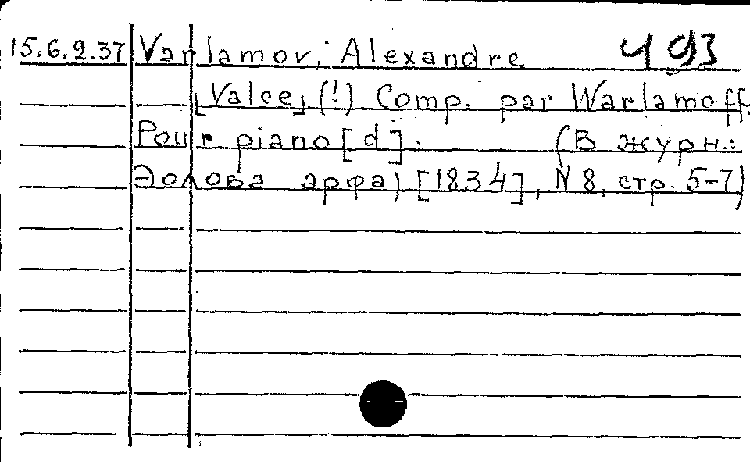 15.6.2.37 Varlamov, Alexandre 493
[Valce] (!) Comp. par Warlamoff.
Pour piano [d]. (В журн.:
Эолова арфа) [1834], N 8, стр. 5-7)